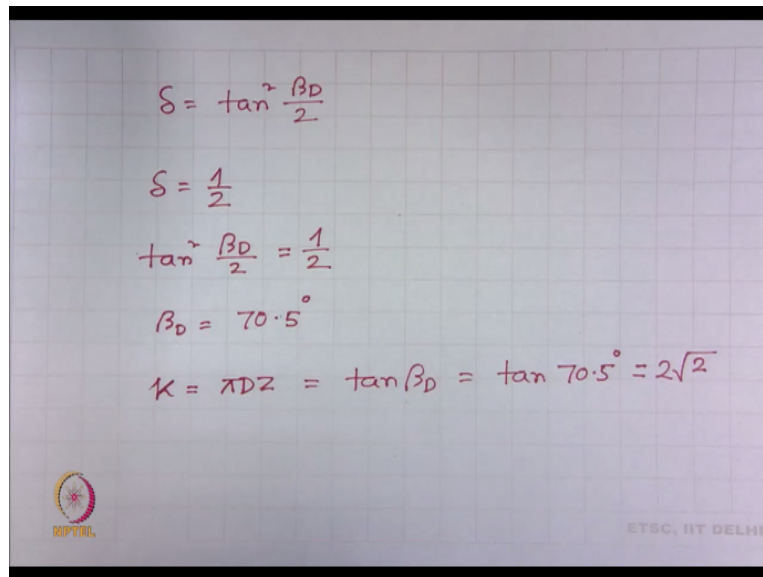 δ = tan² βD/2
δ = 1/2
tan² βD/2 = 1/2
βD = 70.5°
K = πDZ = tan βD = tan 70.5° = 2√2
NPTEL
ETSC, IIT DELHI